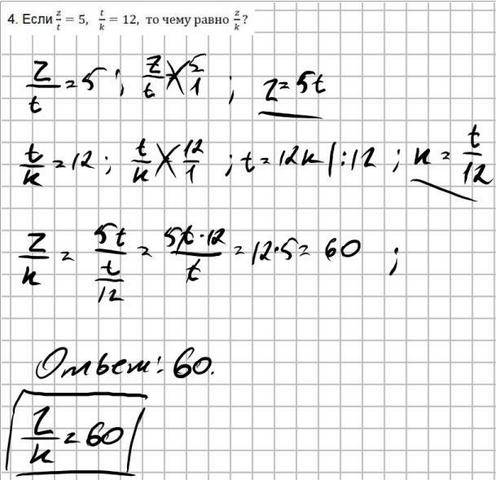 4. Если z/t = 5, t/k = 12, то чему равно z/k?
z/t = 5 ; z/t = 5/1 ; z = 5t
t/k = 12 ; t/k = 12/1 ; t = 12k | :12 ; k = t/12
z/k = 5t/(t/12) = 5t·12/t = 12·5 = 60 ;
Ответ: 60.
z/k = 60